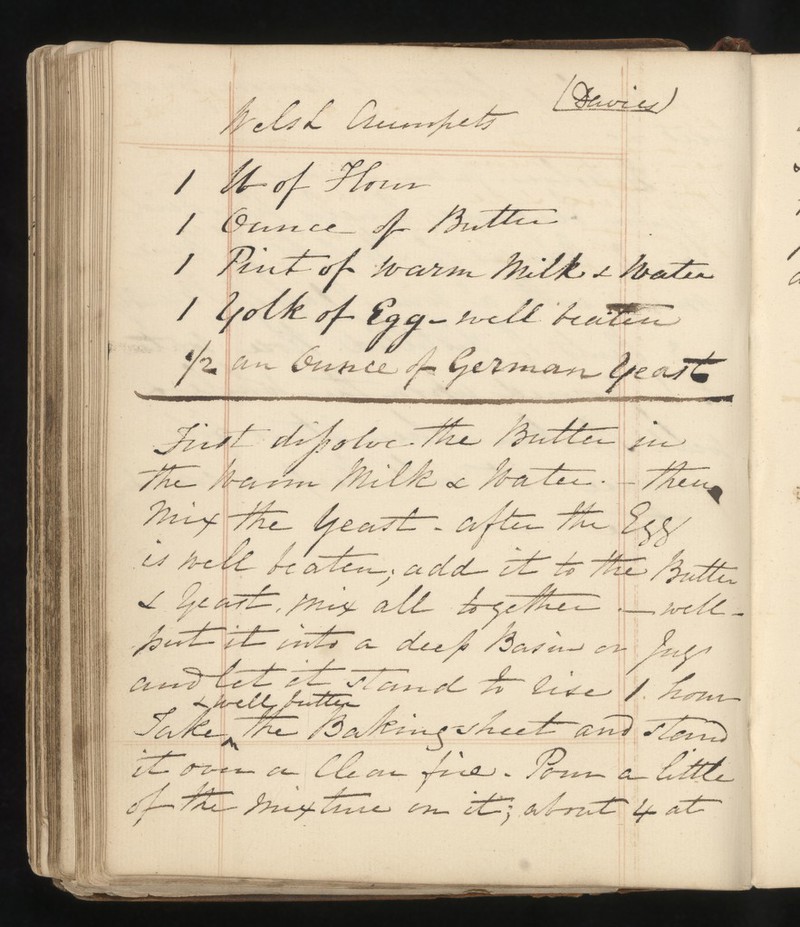 (Davies)
Welsh Crumpets
1 lb of Flour
1 Ounce of Butter
1 Pint of warm Milk & Water
1 Yolk of Egg - well beaten
1/2 an Ounce of German Yeast
First dissolve the Butter in
the Warm Milk & Water. - then
Mix the Yeast - after the Egg
is well beaten; add it to the Butter
& Yeast. Mix all together - well -
put it into a deep Basin or Jug
and let it stand to rise 1 hour
& well butter
Take the Baking sheet and stand
it over a Clear fire. Pour a little
of the Mixture on it; about 4 at